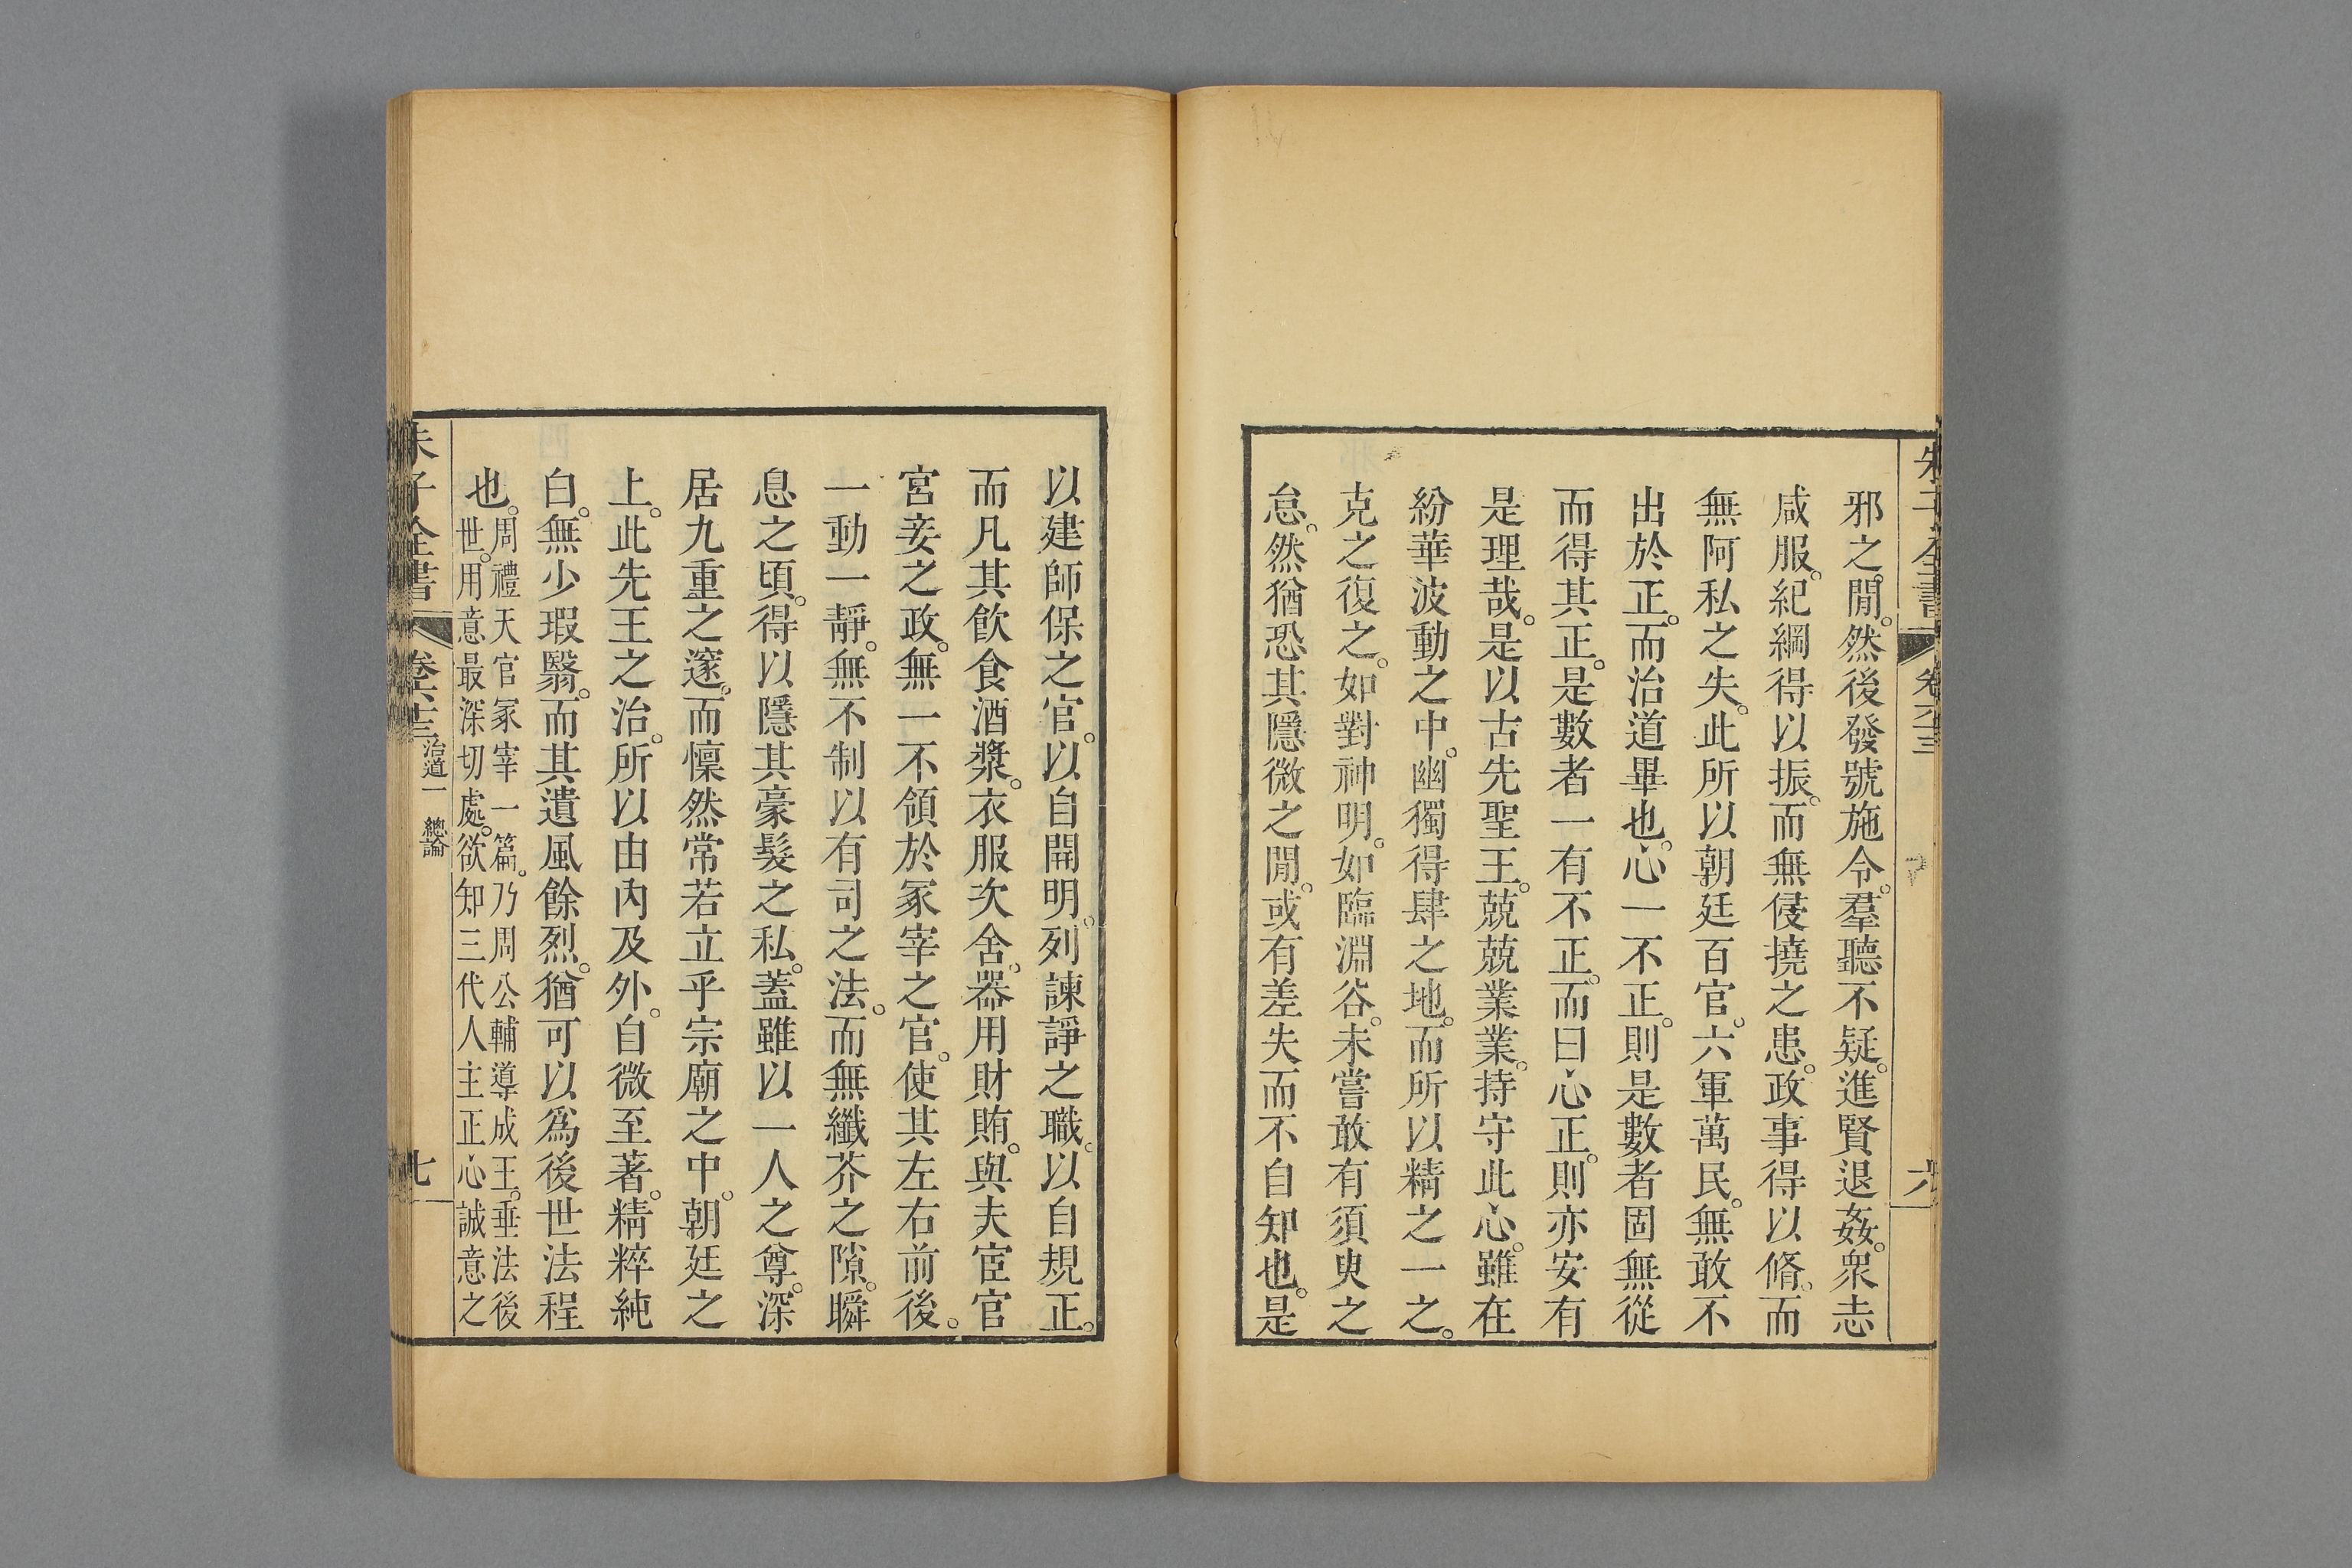 朱子全書 卷六十三 六
邪之閒。然後發號施令。羣聽不疑。進賢退姦。衆志
咸服。紀綱得以振。而無侵撓之患。政事得以脩。而
無阿私之失。此所以朝廷百官。六軍萬民。無敢不
出於正。而治道畢也。心一不正。則是數者固無從
而得其正。是數者一有不正。而曰心正。則亦安有
是理哉。是以古先聖王。兢兢業業。持守此心。雖在
紛華波動之中。幽獨得肆之地。而所以精之一之。
克之復之。如對神明。如臨淵谷。未嘗敢有須臾之
怠。然猶恐其隱微之閒。或有差失而不自知也。是
以建師保之官。以自開明。列諫諍之職。以自規正。
而凡其飲食酒漿。衣服次舍。器用財賄。與夫宦官
宮妾之政。無一不領於冢宰之官。使其左右前後。
一動一靜。無不制以有司之法。而無纖芥之隙。瞬
息之頃。得以隱其豪髮之私。蓋雖以一人之尊。深
居九重之邃。而懍然常若立乎宗廟之中。朝廷之
上。此先王之治。所以由內及外。自微至著。精粹純
白。無少瑕翳。而其遺風餘烈。猶可以爲後世法程
也。周禮天官冢宰一篇。乃周公輔導成王。垂法後
世。用意最深切處。欲知三代人主正心誠意之
朱子全書 卷六十三 治道一 總論 七